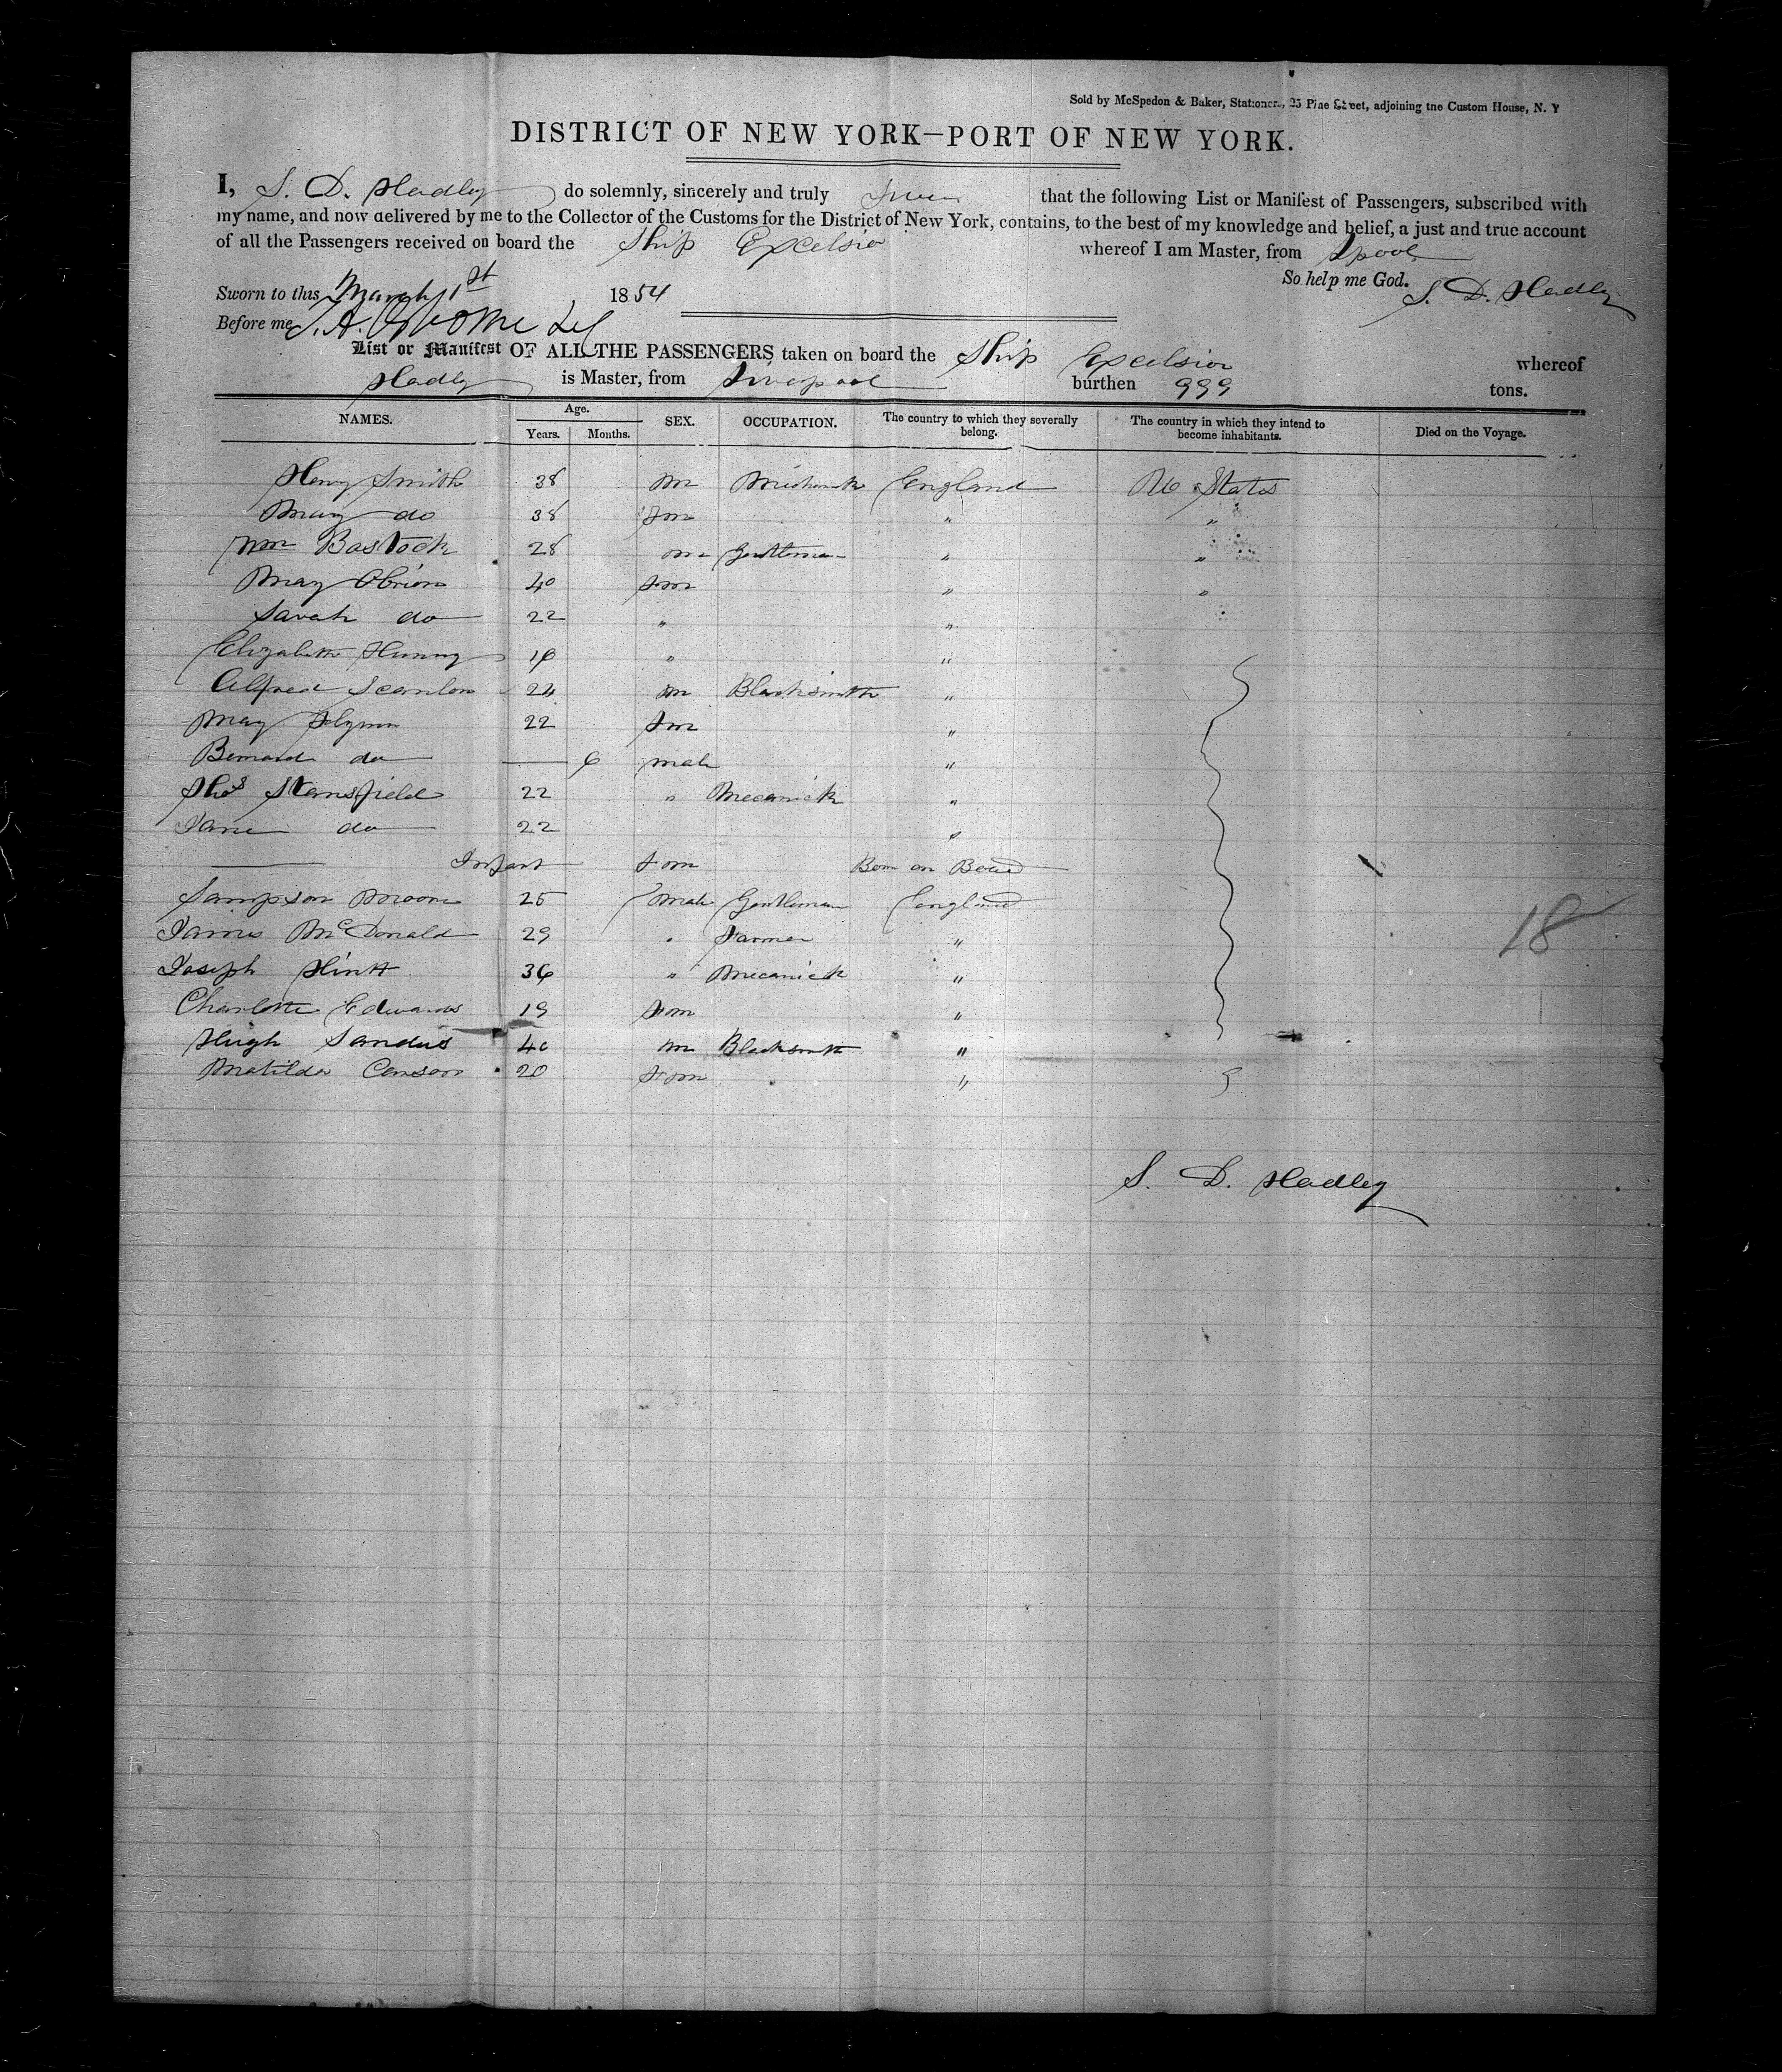 Sold by McSpedon & Baker, Stationers, 25 Pine Street, adjoining the Custom House, N. Y
DISTRICT OF NEW YORK—PORT OF NEW YORK.
I, S. D. Hadley do solemnly, sincerely and truly that the following List or Manifest of Passengers, subscribed with
my name, and now delivered by me to the Collector of the Customs for the District of New York, contains, to the best of my knowledge and belief, a just and true account
of all the Passengers received on board the Ship Excelsior whereof I am Master, from Lpool
So help me God. S. D. Hadley
Sworn to this March 1st 1854
Before me
List or Manifest OF ALL THE PASSENGERS taken on board the Ship Excelsior whereof
Hadley is Master, from Liverpool burthen 999 tons.
NAMES. Age. Years. Months. SEX. OCCUPATION. The country to which they severally belong. The country in which they intend to become inhabitants. Died on the Voyage.
Henry Smith 38 m England U States
Mary do 38 Fm " "
Wm Bastock 28 m Gentleman " "
Mary Obrion 40 Fm " "
Sarah do 22 " "
Elizabeth 16 " "
Alfred Scanlon 24 m Blacksmith "
Mary Flynn 22 Fm "
Bernard do 6 male "
Thos Stansfield 22 " Mecanick "
Jane do 22 "
Infant Fem Born on Board
Sampson Moore 25 Male Gentleman England
James McDonald 29 " Farmer "
Joseph Flint 36 " Mecanick "
Charlotte Edwards 19 Fem "
Hugh Sandus 40 m Blacksmith "
Matilda 20 Fem "
18
S. D. Hadley